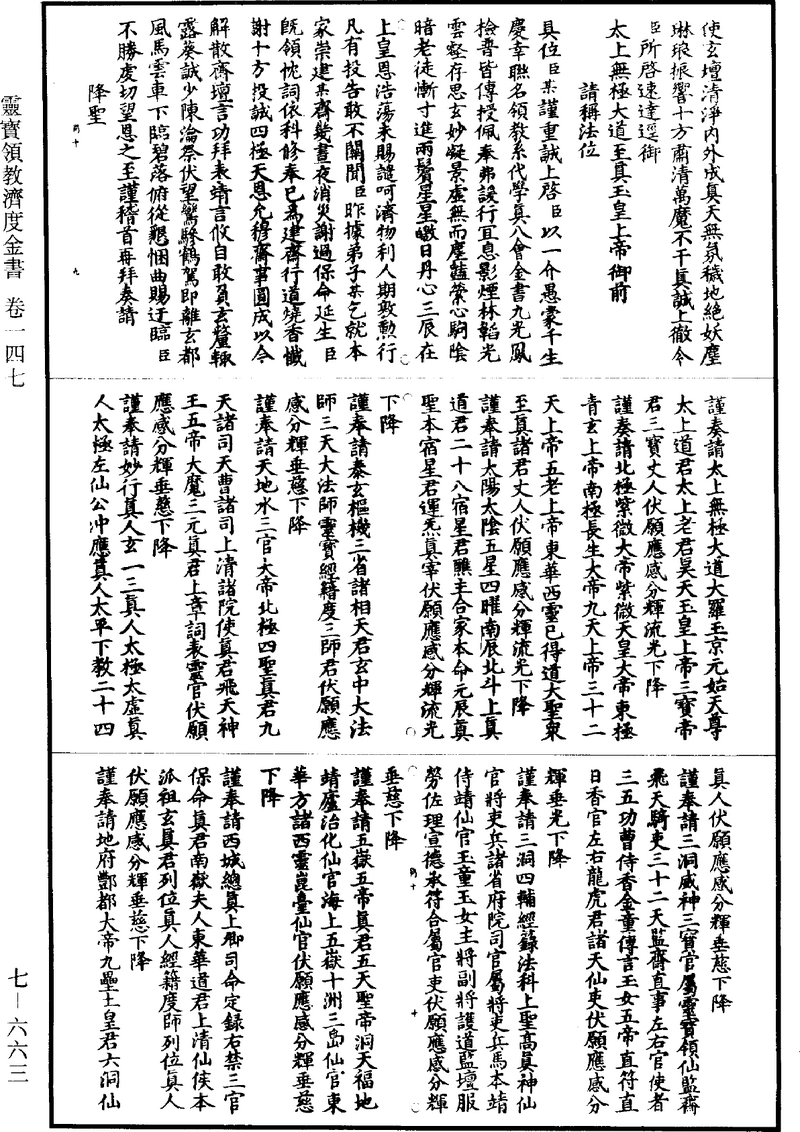 使玄壇清淨內外成真天無氛穢地絕妖塵
琳琅振響十方肅清萬魔不干真誠上徹令
臣所啓速達逕御
太上無極大道至真玉皇上帝御前
請稱法位
具位臣某謹重誠上啓臣以一介愚蒙千生
慶幸聯名領教系代學真八會金書九光鳳
檢普皆傳授佩奉弗設行宜息影煙林韜光
雲壑存思玄妙凝景虛無而塵囂縈心駒陰
暗老徒慚寸進兩鬢星星皦日丹心三辰在
上皇恩浩蕩未賜譴呵濟物利人期敦勲行
凡有投告敢不關聞臣昨據弟子某乞就本
家崇建某齋幾晝夜消災謝過保命延生臣
旣領忱詞依科修奉已為建齋行道燒香懺
謝十方投誠四極天恩允穆齋事圓成以今
解散齋壇言功拜表靖言攸自敢負玄釐輙
露葵誠少陳瀹祭伏望鸞驂鶴駕即離玄都
風馬雲車下臨碧落俯從懇悃曲賜迂臨臣
不勝虔切望恩之至謹稽首再拜奏請
降聖
謹奏請太上無極大道大羅玉京元始天尊
太上道君太上老君昊天玉皇上帝三寶帝
君三寶丈人伏願應感分輝流光下降
謹奏請北極紫微大帝紫微天皇大帝東極
青玄上帝南極長生大帝九天上帝三十二
天上帝五老上帝東華西靈已得道大聖衆
至真諸君丈人伏願應感分輝流光下降
謹奉請太陽太陰五星四曜南辰北斗上真
道君二十八宿星君醮主合家本命元辰真
聖本宿星君運炁真宰伏願應感分輝流光
下降
謹奉請泰玄樞機三省諸相天君玄中大法
師三天大法師靈寶經籍度三師君伏願應
感分輝垂慈下降
謹奉請天地水三官大帝北極四聖真君九
天諸司天曹諸司上清諸院使真君飛天神
王五帝大魔三元真君上章詞表靈官伏願
應感分輝垂慈下降
謹奉請妙行真人玄一三真人太極太虛真
人太極左仙公冲應真人太平下教二十四
真人伏願應感分輝垂慈下降
謹奉請三洞威神三寶官屬靈寶領仙監齋
飛天騎吏三十二天監齋直事左右官使者
三五功曹侍香金童傳言玉女五帝直符直
日香官左右龍虎君諸天仙吏伏願應感分
輝垂光下降
謹奉請三洞四輔經籙法科上聖高真神仙
官將吏兵諸省府院司官屬將吏兵馬本靖
侍靖仙官玉童玉女主將副將護道監壇服
勞佐理宣德承符合屬官吏伏願應感分輝
垂慈下降
謹奉請五嶽五帝真君五天聖帝洞天福地
靖廬治化仙官海上五嶽十洲三島仙官東
華方諸西靈崑臺仙官伏願應感分輝垂慈
下降
謹奉請西城總真上卿司命定錄右禁三官
保命真君南嶽夫人東華道君上清仙侯本
派祖玄真君列位真人經籍度師列位真人
伏願應感分輝垂慈下降
謹奉請地府酆都大帝九壘土皇君六洞仙
靈寶領教濟度金書 卷一四七
七—六六三